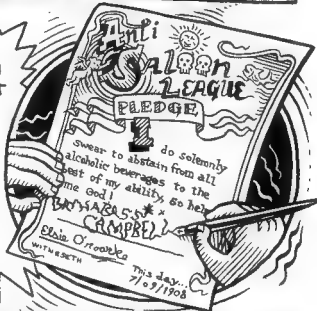 Anti
Saloon
LEAGUE
PLEDGE
I do solemnly
swear to abstain from all
alcoholic beverages to the
best of my ability, so help
me God!
CAMPBELL
Elsie O'rourke
WITNESSETH
This day...
9/09/1908